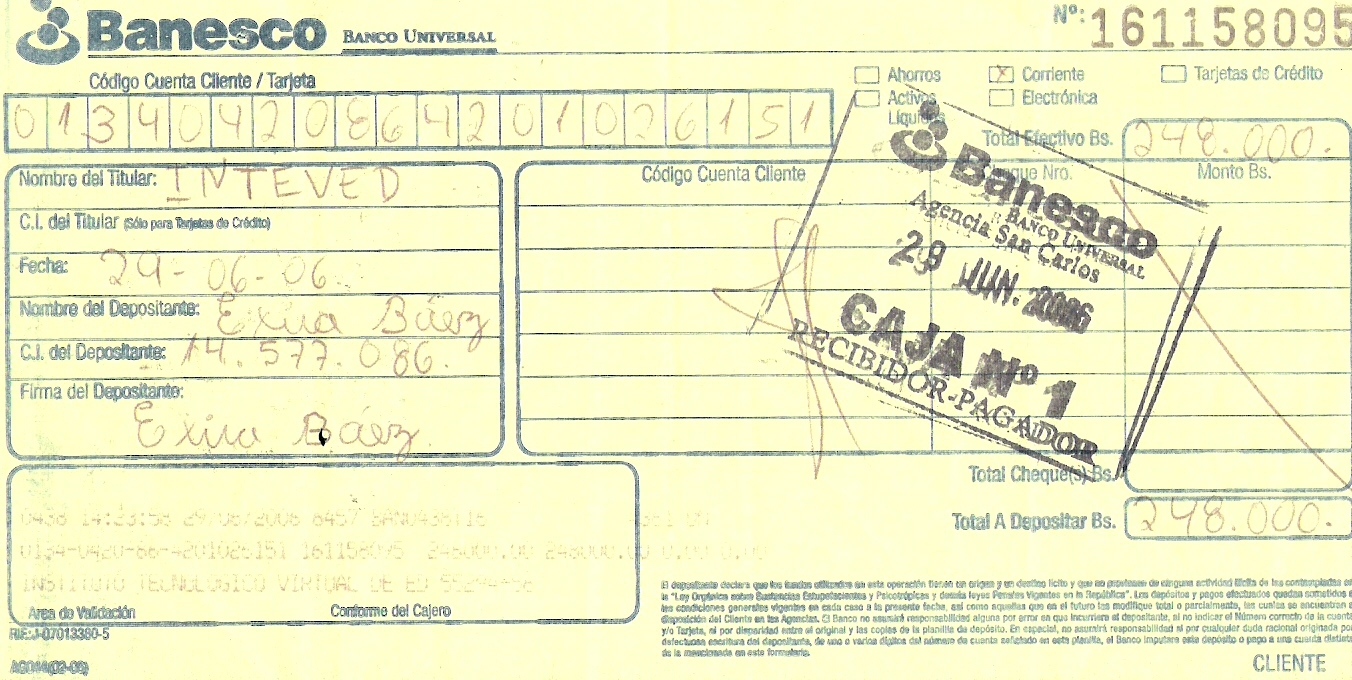 Banesco BANCO UNIVERSAL
Nº: 161158095
Código Cuenta Cliente / Tarjeta
Ahorros
X Corriente
Tarjetas de Crédito
Activos Líquidos
Electrónica
01340420864201026151
Total Efectivo Bs. 248.000.
Nombre del Titular: INTEVED
Código Cuenta Cliente
Cheque Nro.
Monto Bs.
C.I. del Titular (Sólo para Tarjetas de Crédito)
Fecha: 29-06-06
Nombre del Depositante: Exira Báez
C.I. del Depositante: 14.577.086.
Firma del Depositante:
Exira Báez
Banesco
BANCO UNIVERSAL
Agencia San Carlos
29 JUN. 2006
CAJA Nº 1
RECIBIDOR-PAGADOR
Total Cheque(s) Bs.
Total A Depositar Bs. 248.000.
0438 14:23:58 29/06/2006 6457
0134-0420-86-4201026151 161158095 248000.00 248000.00 0.00 0.00
INSTITUTO TECNOLOGICO VIRTUAL DE ED
Area de Validación
Conforme del Cajero
RIF: J-07013380-5
El depositante declara que los fondos utilizados en esta operación tienen un origen y un destino lícito y que no provienen de ninguna actividad ilícita de las contempladas en
la "Ley Orgánica sobre Sustancias Estupefacientes y Psicotrópicas y demás leyes Penales Vigentes en la República". Los depósitos y pagos efectuados quedan sometidos a
las condiciones generales vigentes en cada caso a la presente fecha, así como aquellas que en el futuro las modifique total o parcialmente, las cuales se encuentran a
disposición del Cliente en las Agencias. El Banco no asumirá responsabilidad alguna por error en que incurriera el depositante, si no indicar el Número correcto de la cuenta
y/o Tarjeta, ni por disparidad entre el original y las copias de la planilla de depósito. En especial, no asumirá responsabilidad si por cualquier duda racional originada por
defectuosa escritura del depositante, de uno o varios dígitos del número de cuenta señalado en esta planilla, el Banco imputare este depósito o pago a una cuenta distinta
de la mencionada en este formulario.
CLIENTE